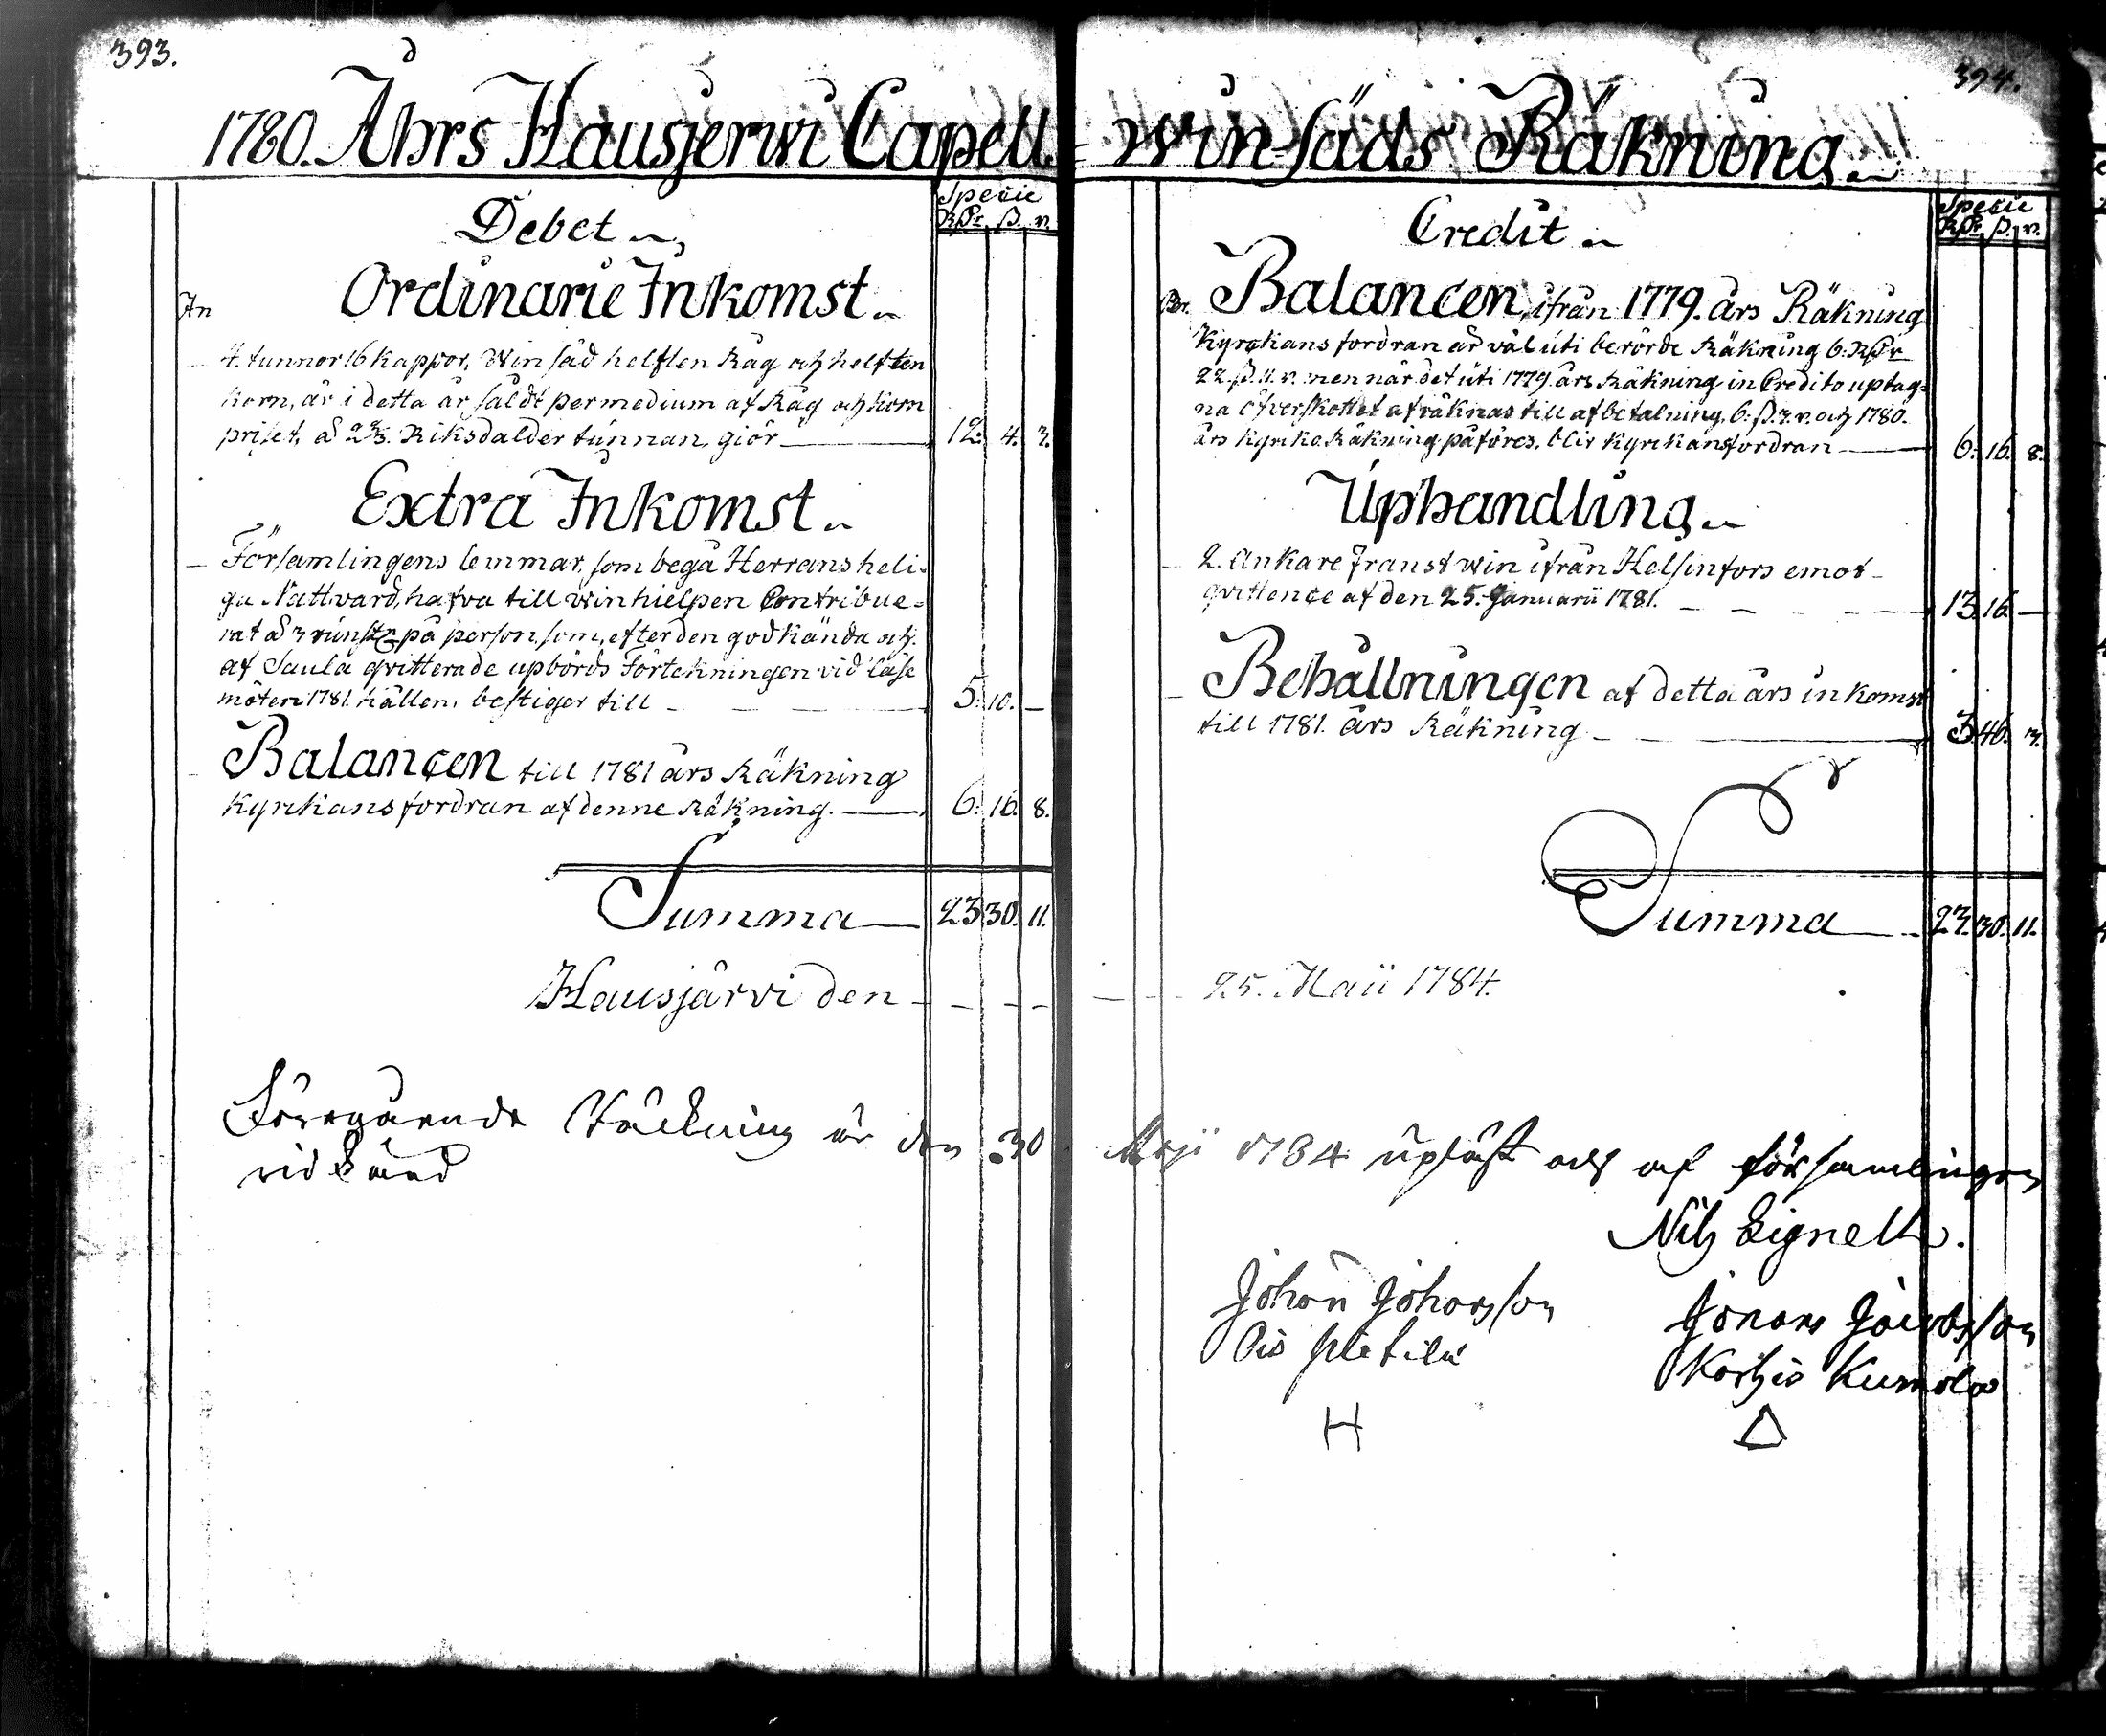 393.
1780. Åhrs Hausjerwi Capell
Debet
Specie
RDr. ß. r.
Ordinarie Inkomst
An
4. tunnor 16 kappor, Win säd helften Råg och helften
korn, är i detta år såldt per medium af Råg och korn
priset, à 2 2/3. Riksdalder tunnan, giör 12. 4. 3.
Extra Inkomst
Församlingens lemmar, som begå Herrans heli-
ga Nattvard, hafva till winhielpen Contribue-
rat à 3 runst: på person, som, efter den godkända och
af Saula qvitterade upbörds Förtekningen vid läse
möten 1781. hållen, bestiger till 5. 10. —
Balancen till 1781 års Räkning
Kyrckans fordran af denne Räkning. 6. 16. 8.
Summa 23 30. 11.
Hausjärvi den
Föregående Räckning är den 30
vidkänd
394.
win-säds Räkning
Credit
Specie
RDr. ß. r.
Per Balancen, ifrån 1779. års Räkning
Kyrckans fordran är väl uti berörde Räkning 6. RDr
22 ß. 11. r. men när det uti 1779 års Räkning in Credito uptag-
na öfverskottet afräknas till afbetalning, 6. ß. 3. r. och 1780.
års Kyrcko Räkning påföres, blir Kyrckans fordran 6. 16. 8.
Uphandling
2. Ankare Franst win ifrån Helsinfors emot
qvittence af den 25. Januarii 1781. 13. 16. —
Behållningen af detta års inkomst
till 1781. års Räkning 3. 46. 3.
Summa 23. 30. 11.
25. Maii 1784.
Maji 1784 upläst och af församlingen
Nils Lignell.
Johan Johansson
Jonas Jacobsson
Kumola
H
Δ